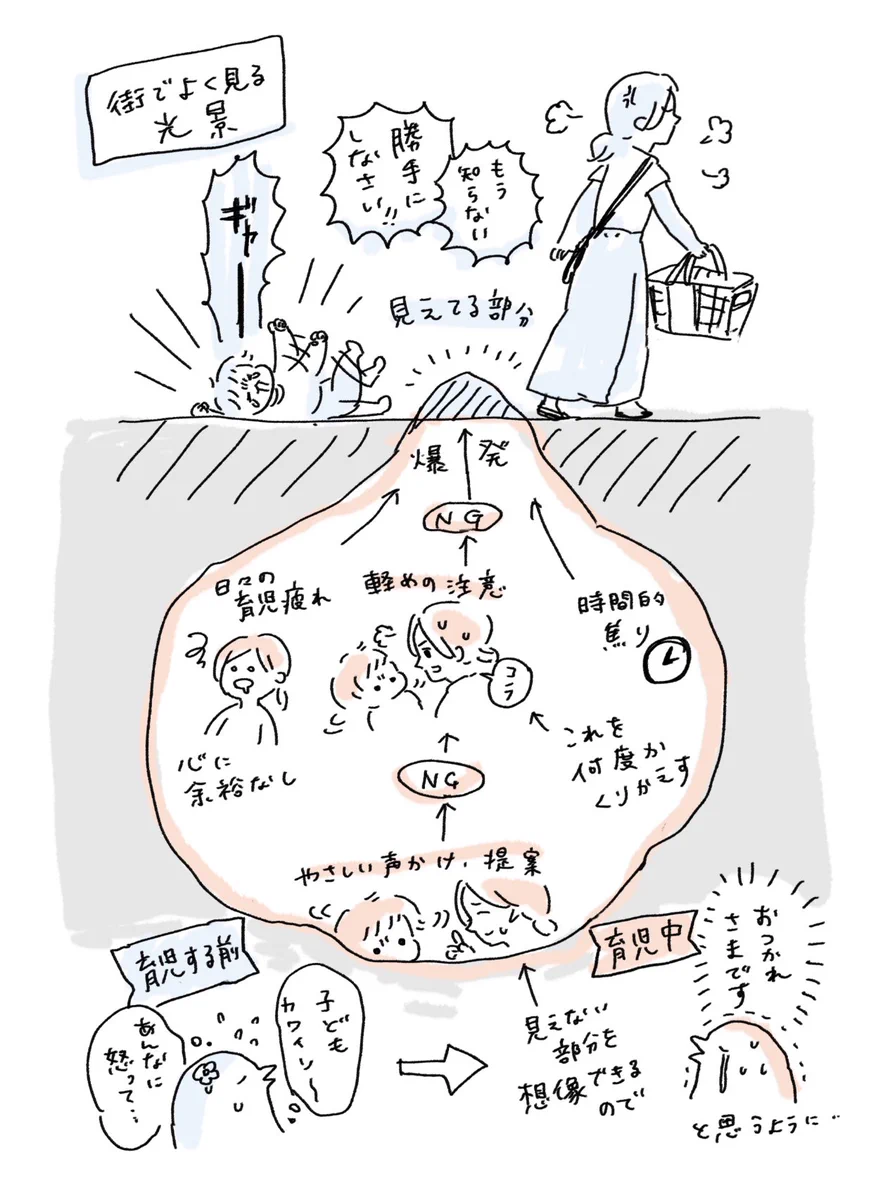 街でよく見る
光景
もう
知らない
勝手に
しなさい!!
ギャー
見えてる部分
爆発
NG
日々の
育児疲れ
軽めの注意
時間的
焦り
コラ
心に
余裕なし
これを
何度か
くりかえす
NG
やさしい声かけ、提案
育児する前
育児中
おつかれ
さまです
子ども
カワイソ〜
あんなに
怒って…
見えない
部分を
想像できる
ので
と思うように…